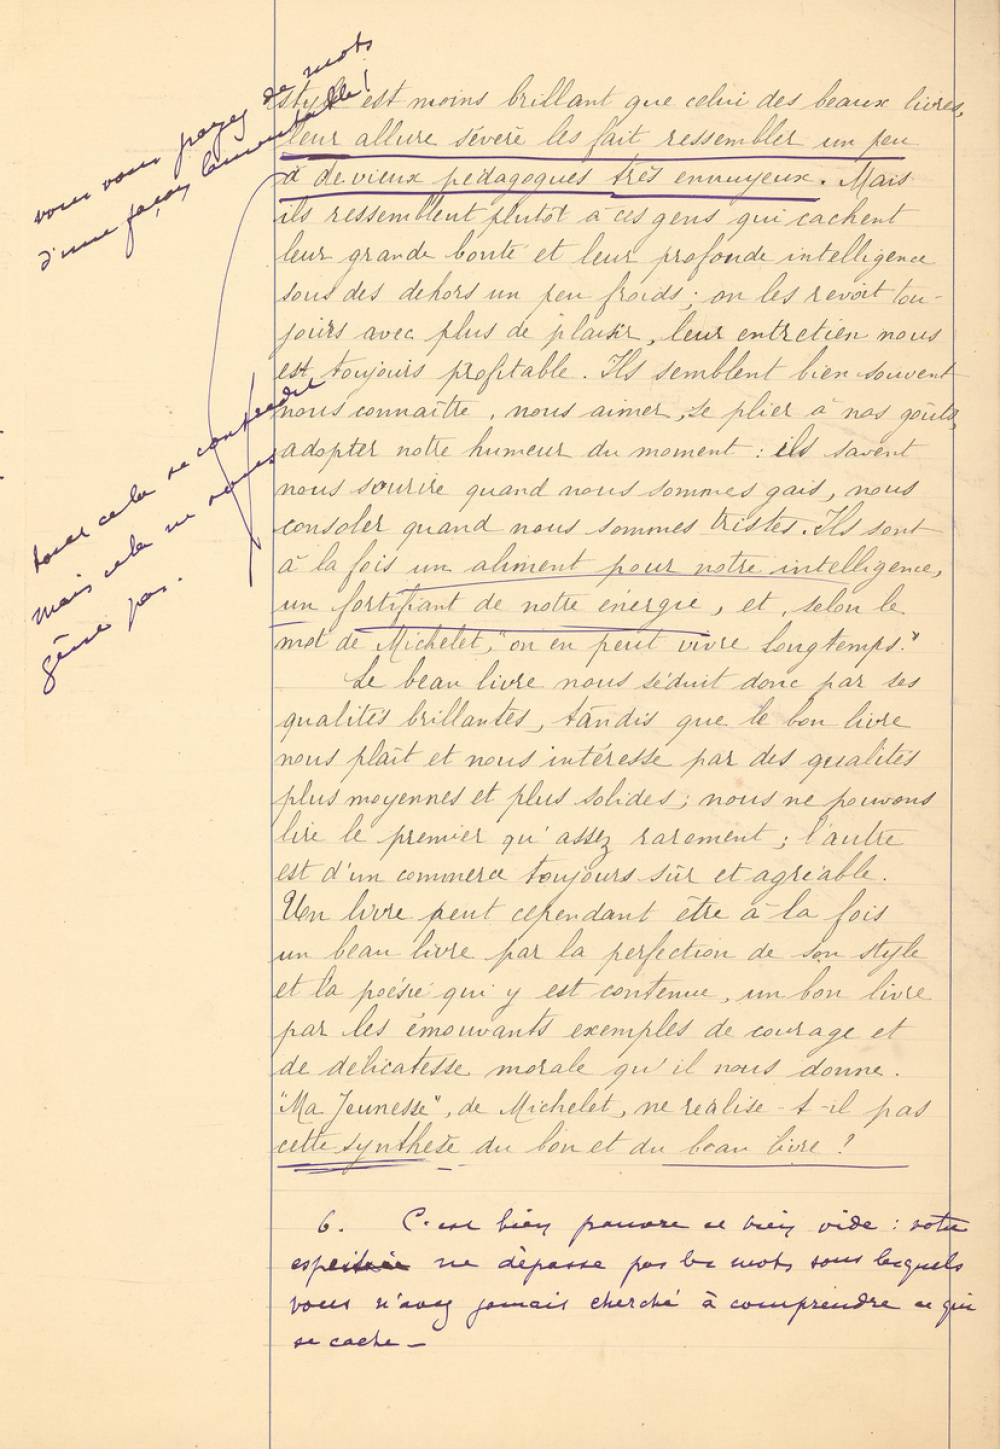 vous vous payez de mots
d'une façon lamentable!
style est moins brillant que celui des beaux livres,
leur allure sévère les fait ressembler un peu
à de vieux pédagogues très ennuyeux. Mais
ils ressemblent plutôt à ces gens qui cachent
leur grande bonté et leur profonde intelligence
sous des dehors un peu froids ; on les revoit tou-
jours avec plus de plaisir, leur entretien nous
est toujours profitable. Ils semblent bien souvent
nous connaître, nous aimer, se plier à nos goûts,
adopter notre humeur du moment : ils savent
nous sourire quand nous sommes gais, nous
consoler quand nous sommes tristes. Ils sont
à la fois un aliment pour notre intelligence,
un fortifiant de notre énergie, et, selon le
mot de Michelet, "on en peut vivre longtemps."
tout cela se confondre
mais cela ne vous
gêne pas.
Le beau livre nous séduit donc par ses
qualités brillantes, tandis que le bon livre
nous plaît et nous intéresse par des qualités
plus moyennes et plus solides ; nous ne pouvons
lire le premier qu'assez rarement ; l'autre
est d'un commerce toujours sûr et agréable.
Un livre peut cependant être à la fois
un beau livre par la perfection de son style
et la poésie qui y est contenue, un bon livre
par les émouvants exemples de courage et
de délicatesse morale qu'il nous donne.
"Ma Jeunesse", de Michelet, ne réalise-t-il pas
cette synthèse du bon et du beau livre ?
6. C'est bien pauvre et bien vide : votre
ne dépasse pas les mots sous lesquels
vous n'avez jamais cherché à comprendre ce qui
se cache –